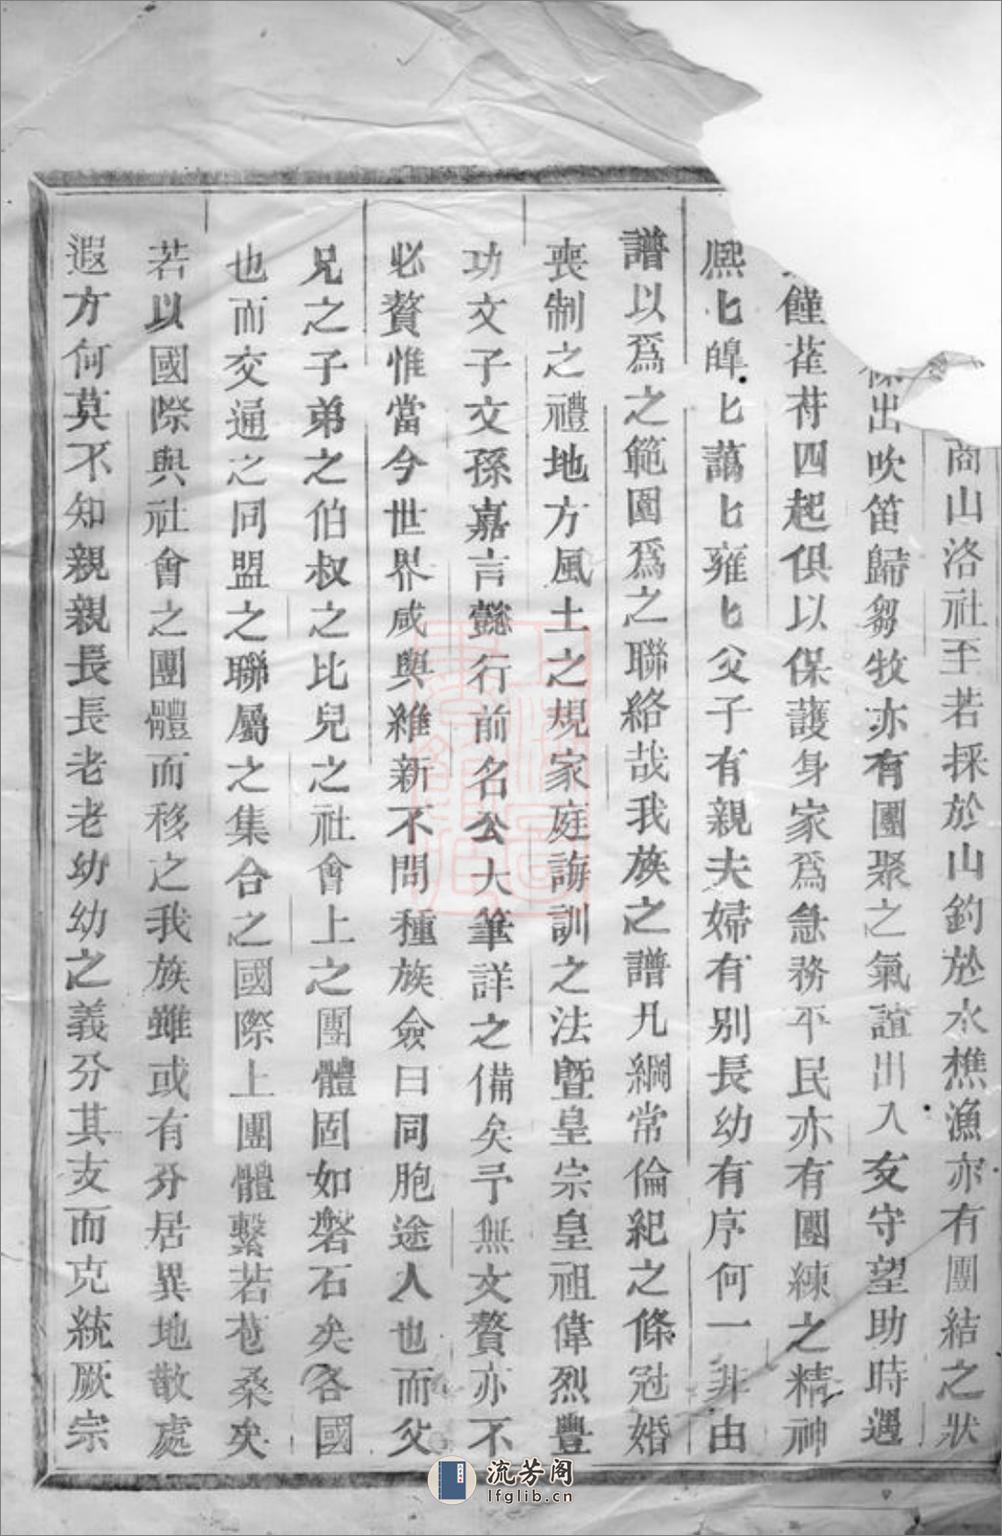 商山洛社至若採於山釣於水樵漁亦有團結之狀
出吹笛歸芻牧亦有團聚之氣誼出入友守望助時遇
饉萑苻四起俱以保護身家爲急務平民亦有團練之精神
熈匕皥匕藹匕雍匕父子有親夫婦有别長幼有序何一非由
譜以爲之範圍爲之聯絡哉我族之譜凡綱常倫紀之條冠婚
喪制之禮地方風土之規家庭誨訓之法曁皇宗皇祖偉烈豐
功文子文孫嘉言懿行前名公大筆詳之備矣予無文贅亦不
必贅惟當今世界咸與維新不問種族僉曰同胞途人也而父
兄之子弟之伯叔之比兒之社會上之團體固如磐石矣各國
也而交通之同盟之聯屬之集合之國際上團體繫若苞桑矣
若以國際與社會之團體而移之我族雖或有分居異地散處
遐方何莫不知親親長長老老幼幼之義分其支而克統厥宗
流芳阁
lfglib.cn